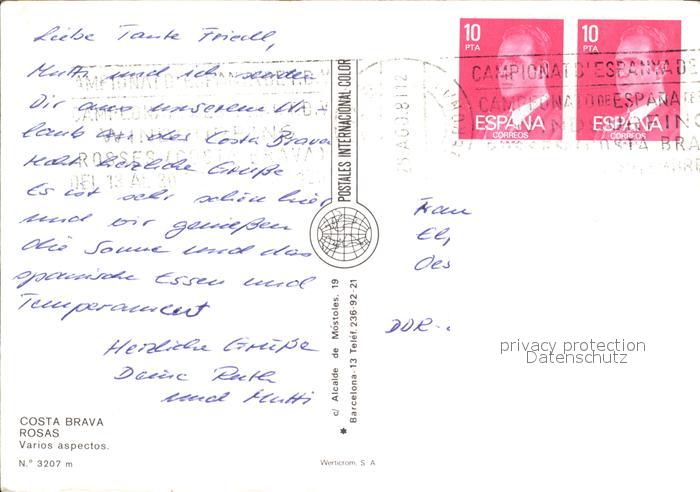 Liebe Tante Friedl,
Mutti und ich senden
Dir aus unserem Ur-
laub an der Costa Brava
sehr herzliche Grüße
Es ist sehr schön hier
und wir genießen
die Sonne und das
spanische Essen und
Temperament
Herzliche Grüße
Deine Ruth
und Mutti
COSTA BRAVA
ROSAS
Varios aspectos.
N.º 3207 m
POSTALES INTERNACIONAL COLOR
c/ Alcalde de Móstoles, 19
Barcelona-13 Teléf. 236-92-21
Werticrom, S. A
10
PTA
ESPAÑA
CORREOS
10
PTA
ESPAÑA
CORREOS
CAMPIONAT D'ESPANYA DE
CAMPEONATO DE ESPAÑA DE
Frau
DDR-
privacy protection
Datenschutz